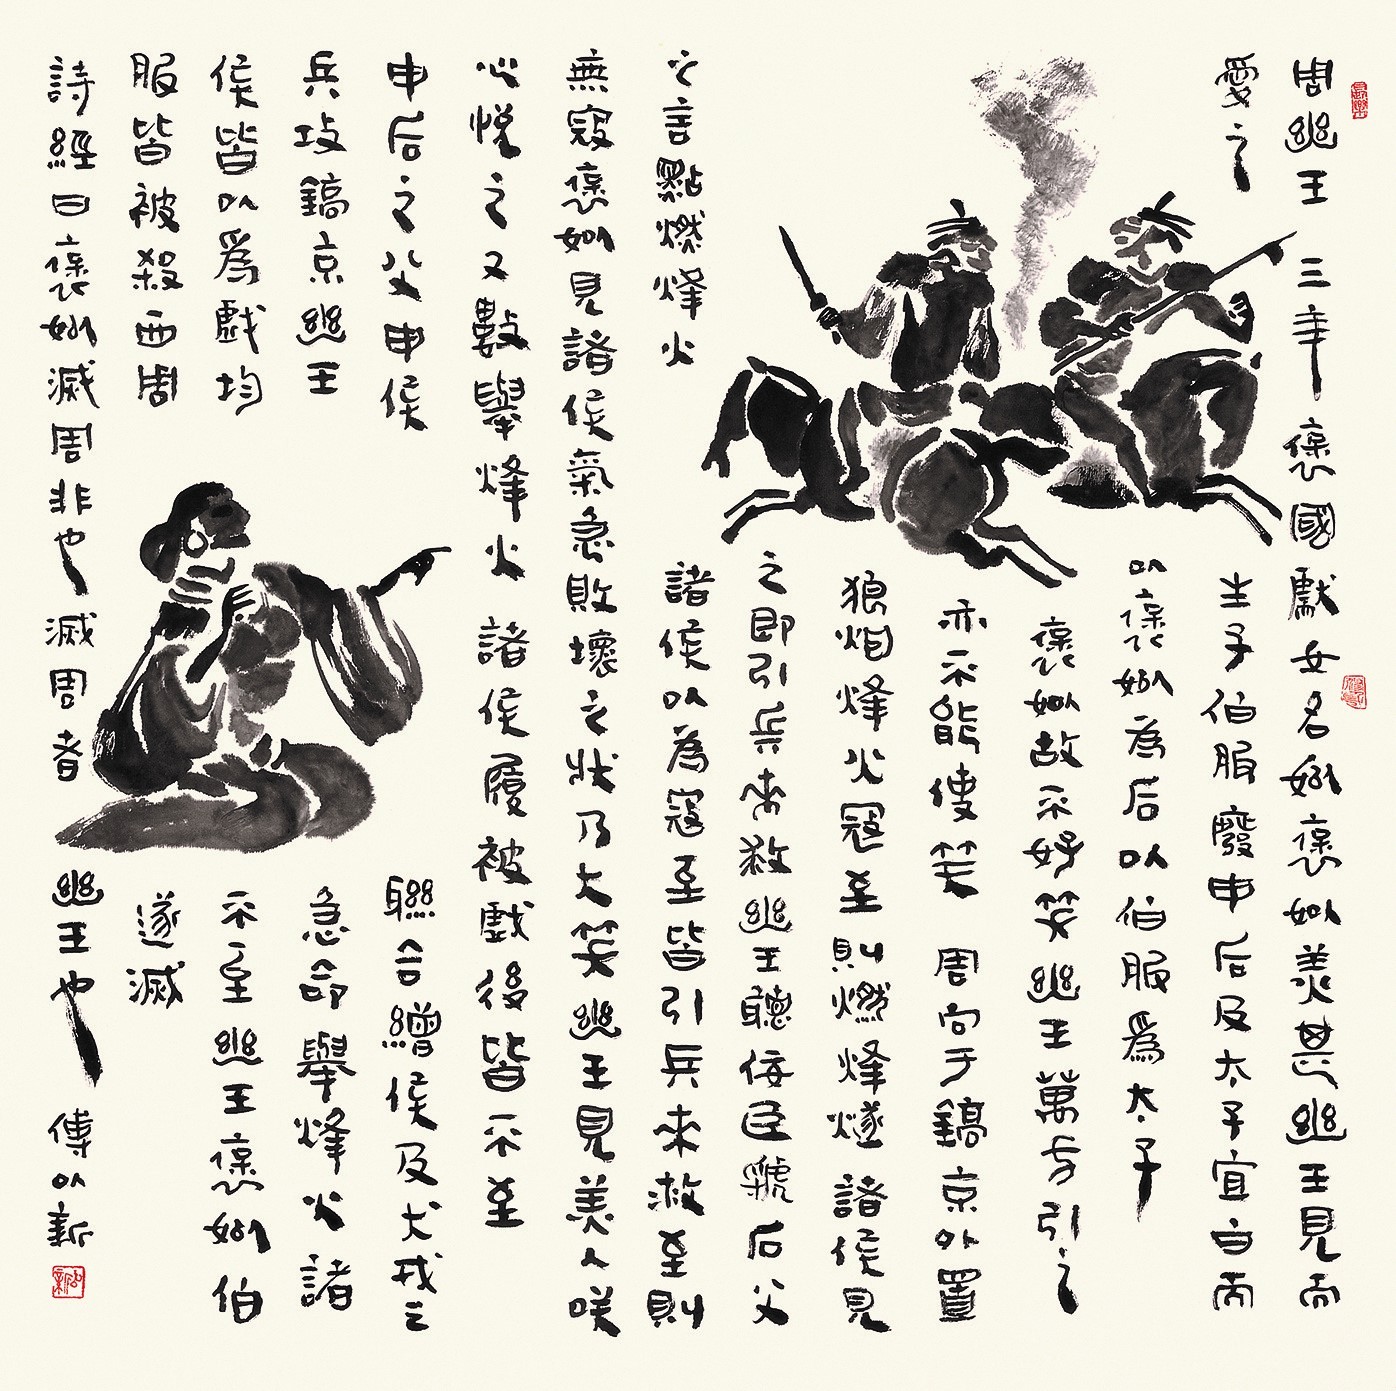 周幽王三年褒國獻女名姒褒姒美甚幽王見而
愛之
生子伯服廢申后及太子宜臼而
以褒姒為后以伯服爲太子
褒姒故不好笑幽王萬方引之
亦不能使笑周向于鎬京外置
狼烟烽火寇至則燃烽燧諸侯見
之即引兵來救幽王聽佞臣虢后父
之言點燃烽火
諸侯以為寇至皆引兵來救至則
無寇褒姒見諸侯氣急敗壞之狀乃大笑幽王見美人咲
心悅之又數舉烽火諸侯屢被戲後皆不至
申后之父申侯聯合繒侯及犬戎之
兵攻鎬京幽王急命舉烽火諸
侯皆以爲戲均不至幽王褒姒伯
服皆被殺西周遂滅
詩經曰褒姒滅周非也滅周者幽王也
傅以新